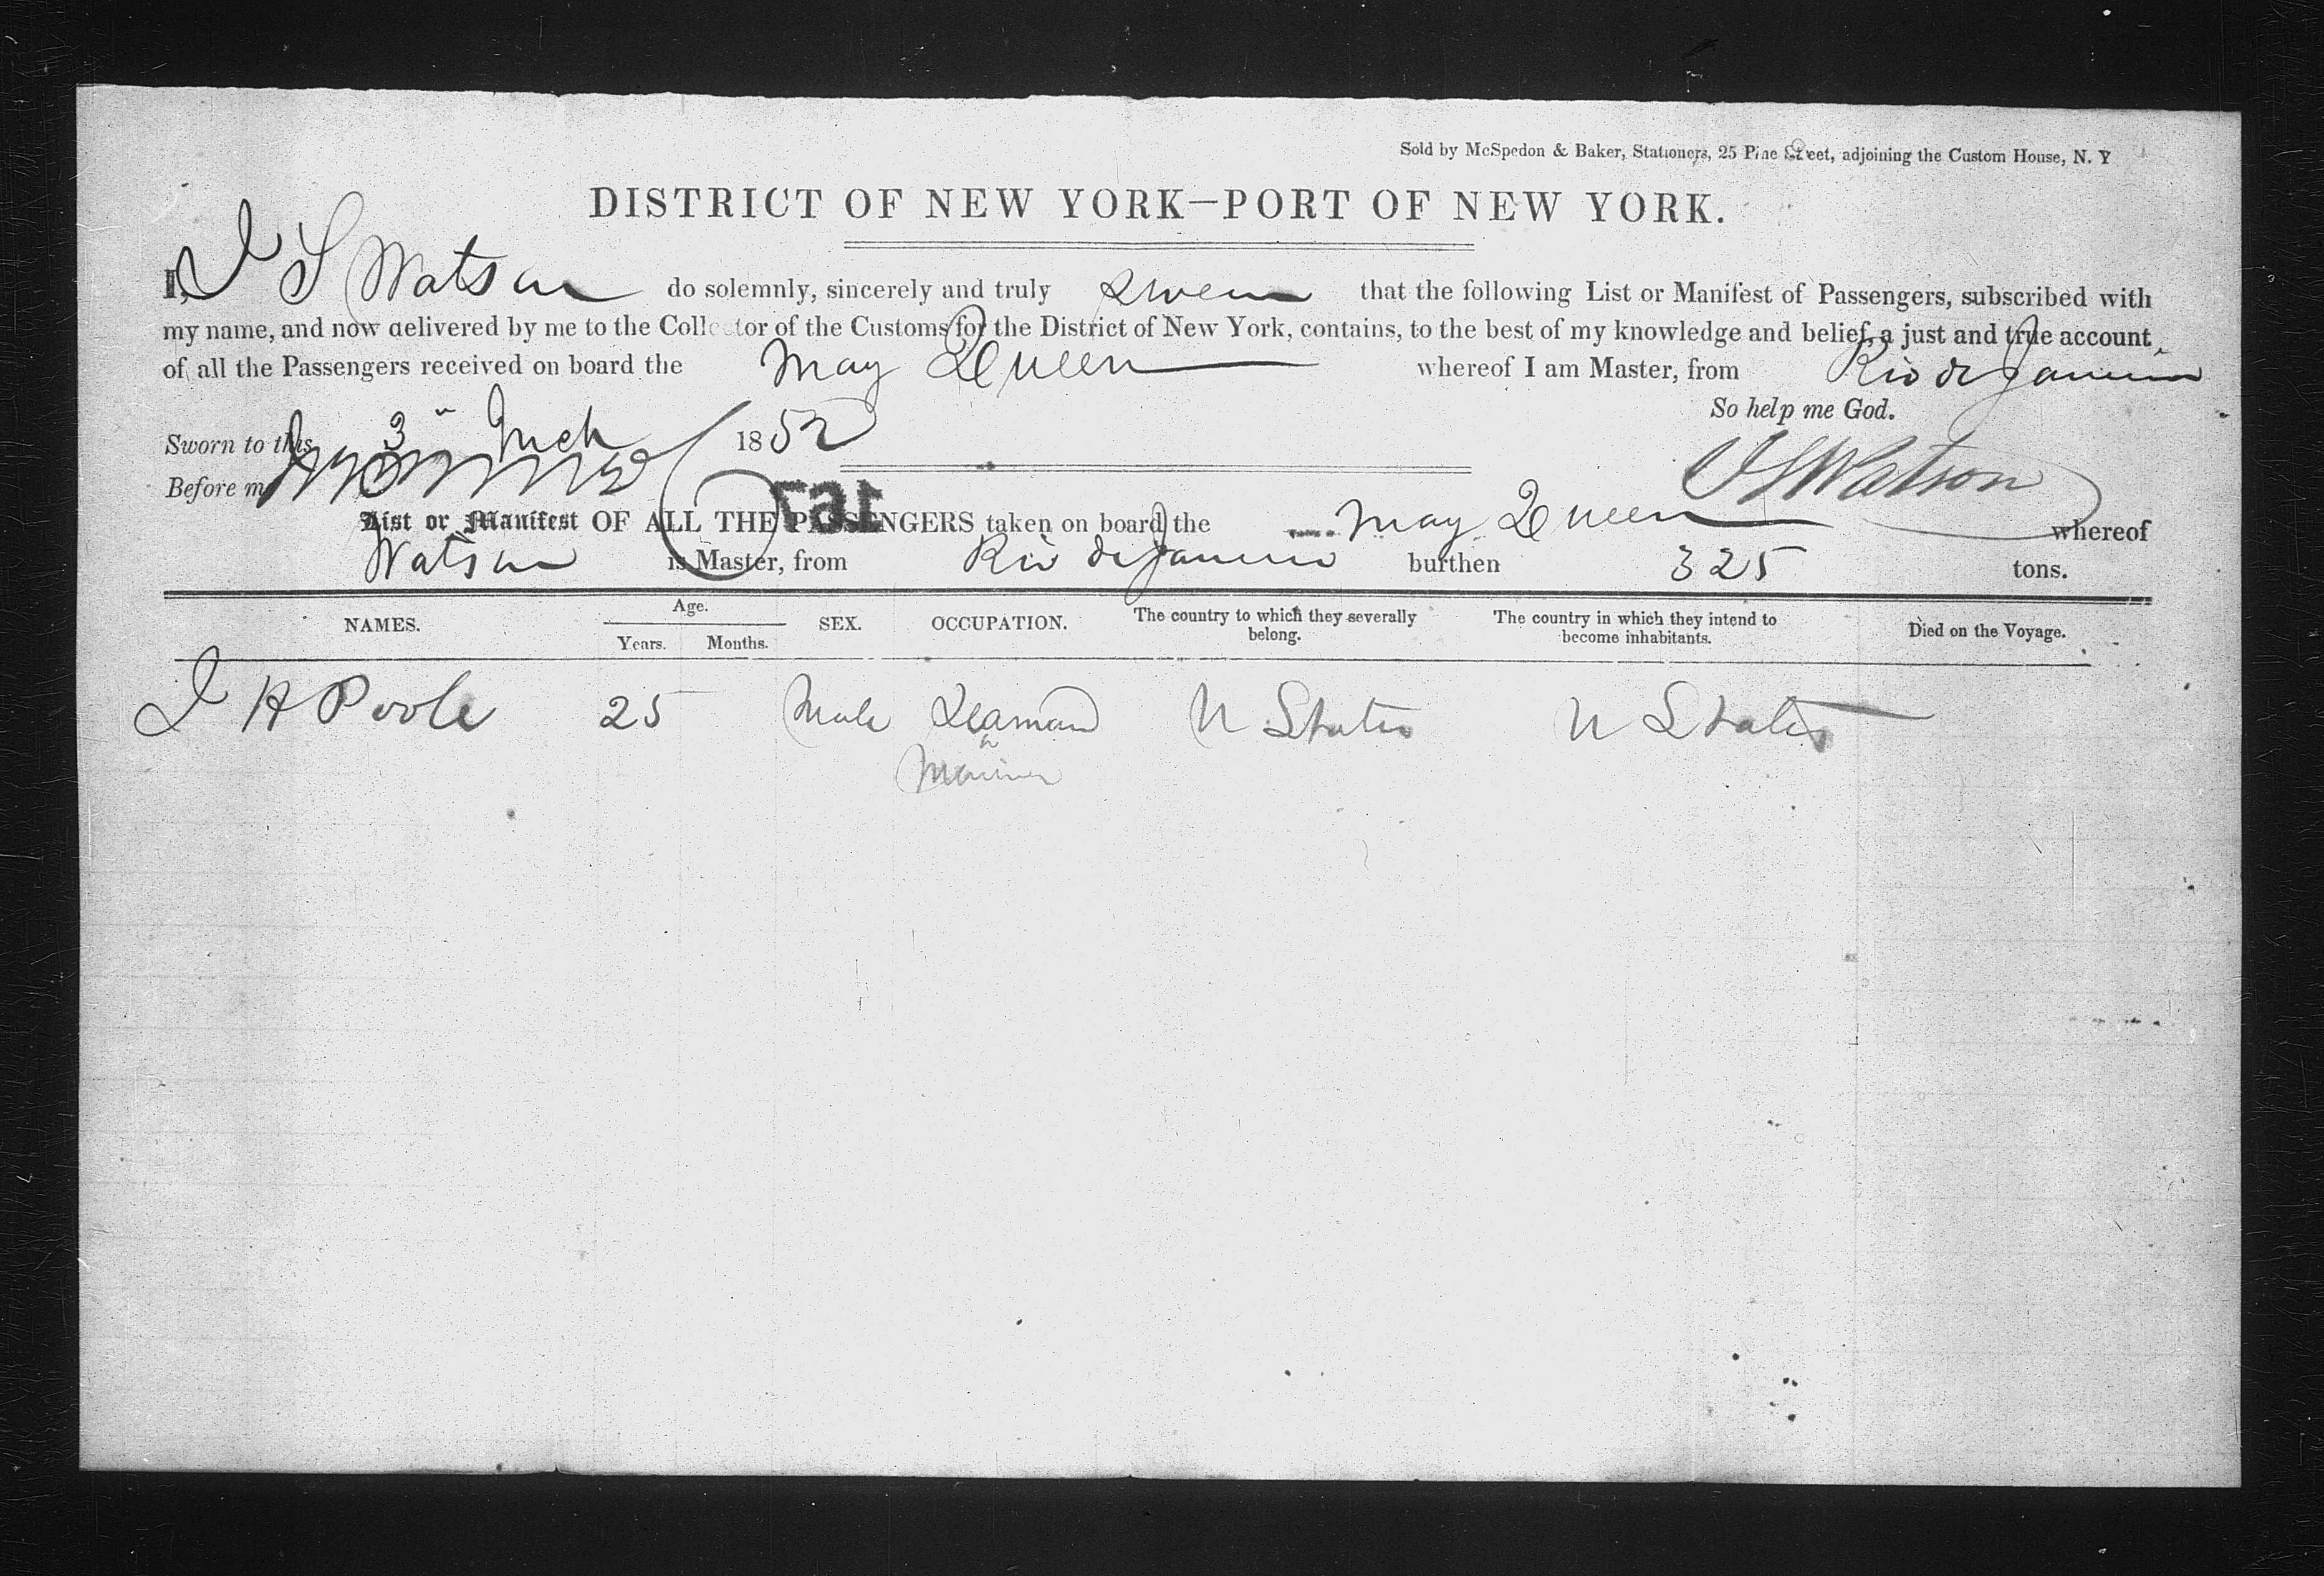 Sold by McSpedon & Baker, Stationers, 25 Pine Street, adjoining the Custom House, N. Y
DISTRICT OF NEW YORK—PORT OF NEW YORK.
I, J S Watson do solemnly, sincerely and truly swear that the following List or Manifest of Passengers, subscribed with
my name, and now delivered by me to the Collector of the Customs for the District of New York, contains, to the best of my knowledge and belief, a just and true account
of all the Passengers received on board the May Queen whereof I am Master, from Rio de Janeiro
So help me God.
Sworn to this 3" Mch 1852
Before me
J S Watson
151
List or Manifest OF ALL THE PASSENGERS taken on board the May Queen whereof
Watson is Master, from Rio de Janeiro burthen 325 tons.
NAMES. Age. Years. Months. SEX. OCCUPATION. The country to which they severally belong. The country in which they intend to become inhabitants. Died on the Voyage.
J H Poole 25 Male Seaman U States U States
Mariner